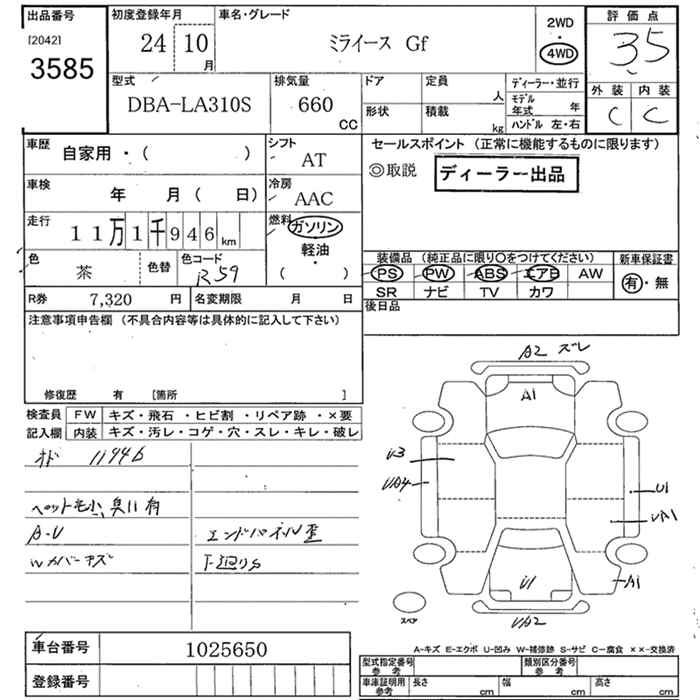 出品番号
[2042]
3585
初度登録年月
24 10
月
車名・グレード
ミライース Gf
2WD
・
4WD
評価点
3.5
外装 内装
C C
型式
DBA-LA310S
排気量
660
CC
ドア
形状
定員
人
積載
kg
ディーラー・並行
モデル
年式 年
ハンドル 左・右
車歴
自家用・( )
シフト
AT
車検
年 月( 日)
冷房
AAC
走行
11万1千946km
燃料
ガソリン
軽油
・
( )
色
茶
色替
色コード
R59
R券 7,320 円
名変期限 月 日
セールスポイント (正常に機能するものに限ります)
◎取説
ディーラー出品
装備品 (純正品に限り○をつけてください)
PS PW ABS エアB AW
SR ナビ TV カワ
新車保証書
有・無
後日品
注意事項申告欄 (不具合内容等は具体的に記入して下さい)
修復歴 有 [箇所 ]
検査員
記入欄
FW キズ・飛石・ヒビ割・リペア跡・×要
内装 キズ・汚レ・コゲ・穴・スレ・キレ・破レ
11946
ペット毛小 臭い有
A-U
エンドパネル歪
Wカバーキズ
下廻りS
A2 ズレ
A1
U3
UA4
U1
UA1
A1
U1
UA2
スペア
A-キズ E-エクボ U-凹み W-補修跡 S-サビ C-腐食 ××-交換済
車台番号 1025650
登録番号
型式指定番号
参考
類別区分番号
参考
車庫証明用
参考
長さ cm
幅 cm
高さ cm